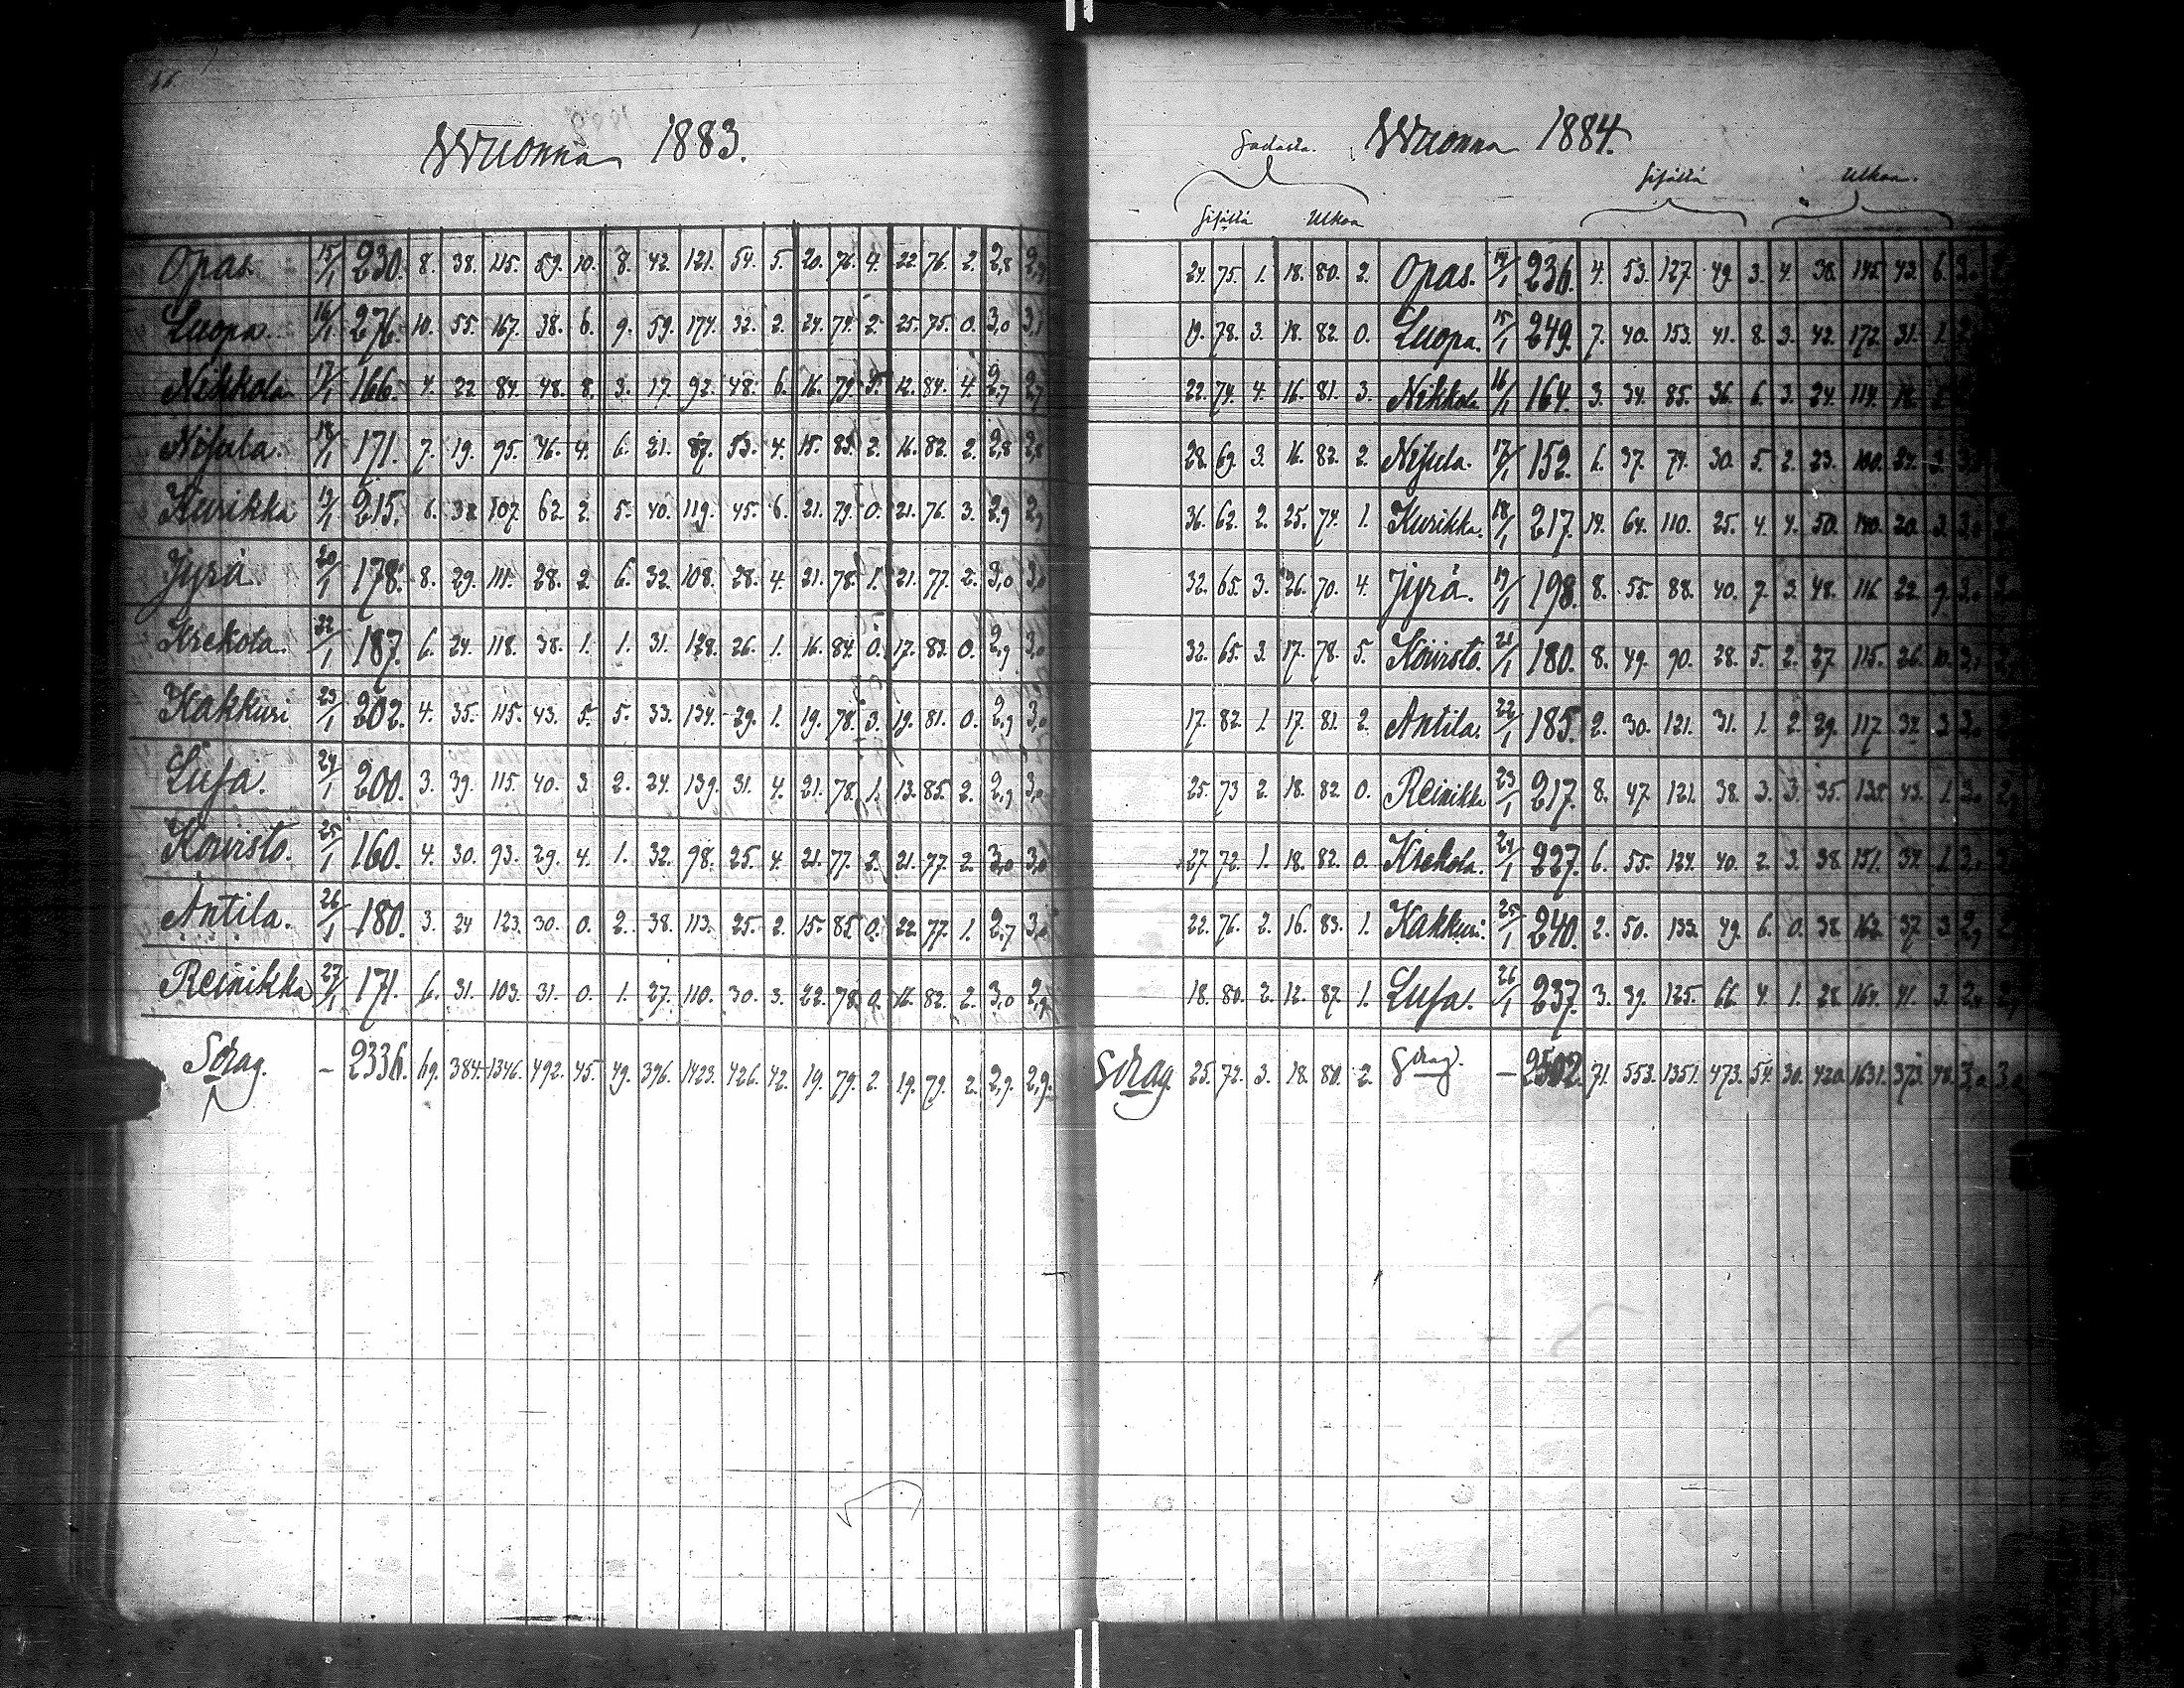 Wuonna 1883.
Opas. 15/1 230. 8. 38. 115. 59. 10. 8. 42. 121. 54. 5. 20. 76. 4. 22. 76. 2. 2,8
Luopa. 16/1 276. 10. 55. 167. 38. 6. 9. 59. 174. 32. 2. 24. 74. 2. 25. 75. 0. 3,0 3,1
Nikkola 17/1 166. 4. 22 84. 48. 8. 3. 17. 92. 48. 6. 16. 79. 5. 12. 84. 4. 2,7 2,7
Nisula. 18/1 171. 7. 19. 95. 46. 4. 6. 21. 87. 53. 4. 15. 83. 2. 16. 82. 2. 2,8 2,8
Kurikka 19/1 215. 6. 38 107. 62. 2. 5. 40. 119. 45. 6. 21. 79. 0. 21. 76. 3. 2,9 2,9
Jyrä 20/1 178. 8. 29. 111. 28. 2. 6. 32. 108. 28. 4. 21. 78. 1. 21. 77. 2. 3,0 3,0
Krekola. 22/1 187. 6. 24. 118. 38. 1. 1. 31. 128. 26. 1. 16. 84. 0. 17. 83. 0. 2,9 3,0
Kakkuri 23/1 202. 4. 35. 115. 43. 5. 5. 33. 134. 29. 1. 19. 78. 3. 19. 81. 0. 2,9 3,0
Lusa. 24/1 200. 3. 39. 115. 40. 3. 2. 24. 139. 31. 4. 21. 78. 1. 13. 85. 2. 2,9 3,0
Koivisto. 25/1 160. 4. 30. 93. 29. 4. 1. 32. 98. 25. 4. 21. 77. 2. 21. 77. 2. 3,0 3,0
Antila. 26/1 180. 3. 24 123. 30. 0. 2. 38. 113. 25. 2. 15. 85. 0. 22. 77. 1. 2,7 3,0
Reinikka 27/1 171. 6. 31. 103. 31. 0. 1. 27. 110. 30. 3. 22. 78. 0. 16. 82. 2. 3,0 2,9
Sdrag. – 2336. 69. 384. 1346. 492. 45. 49. 396. 1423. 426. 42. 19. 79. 2. 19. 79. 2. 2,9. 2,9.
Sadasta. Wuonna 1884.
Sisältä Ulkoa.
Sisältä Ulkoa
24. 75. 1. 18. 80. 2. Opas. 14/1 236. 4. 53. 127. 49. 3. 4. 38. 145. 43. 6. 3,0
19. 78. 3. 18. 82. 0. Luopa. 15/1 249. 7. 40. 153. 41. 8. 3. 42. 172. 31. 1.
22. 74. 4. 16. 81. 3. Nikkola 16/1 164. 3. 34. 85. 36. 6. 3. 24. 114. 18.
28. 69. 3. 16. 82. 2. Nisula. 17/1 152. 6. 37. 74. 30. 5. 2. 23. 100. 24. 3.
36. 62. 2. 25. 74. 1. Kurikka. 18/1 217. 14. 64. 110. 25. 4. 4. 50. 140. 20. 3. 3,0
32. 65. 3. 26. 70. 4. Jyrä. 19/1 198. 8. 55. 88. 40. 7. 3. 48. 116 22. 9. 3,0
32. 65. 3. 17. 78. 5. Koivisto. 21/1 180. 8. 49. 90. 28. 5. 2. 27. 115. 26. 10. 3,1
17. 82. 1. 17. 81. 2. Antila. 22/1 185. 2. 30. 121. 31. 1. 2. 29. 117. 34. 3 3,0
25. 73 2. 18. 82. 0. Reinikka 23/1 217. 8. 47. 121. 38. 3. 3. 35. 135. 43. 1. 3,0
27. 72. 1. 18. 82. 0. Krekola. 24/1 227. 6. 55. 124. 40. 2. 3. 38. 151. 34. 1. 3,0
22. 76. 2. 16. 83. 1. Kakkuri. 25/1 240. 2. 50. 133. 49. 6. 0. 38. 162. 37. 3. 2,9
18. 80. 2. 12. 87. 1. Lusa. 26/1 237. 3. 39. 125. 66. 4. 1. 28. 164. 41. 3. 2,9
Sdrag. 25. 72. 3. 18. 80. 2. Sdrag. – 2502. 71. 553. 1351. 473. 54. 30. 420. 1631. 373. 48. 3,0 3,0